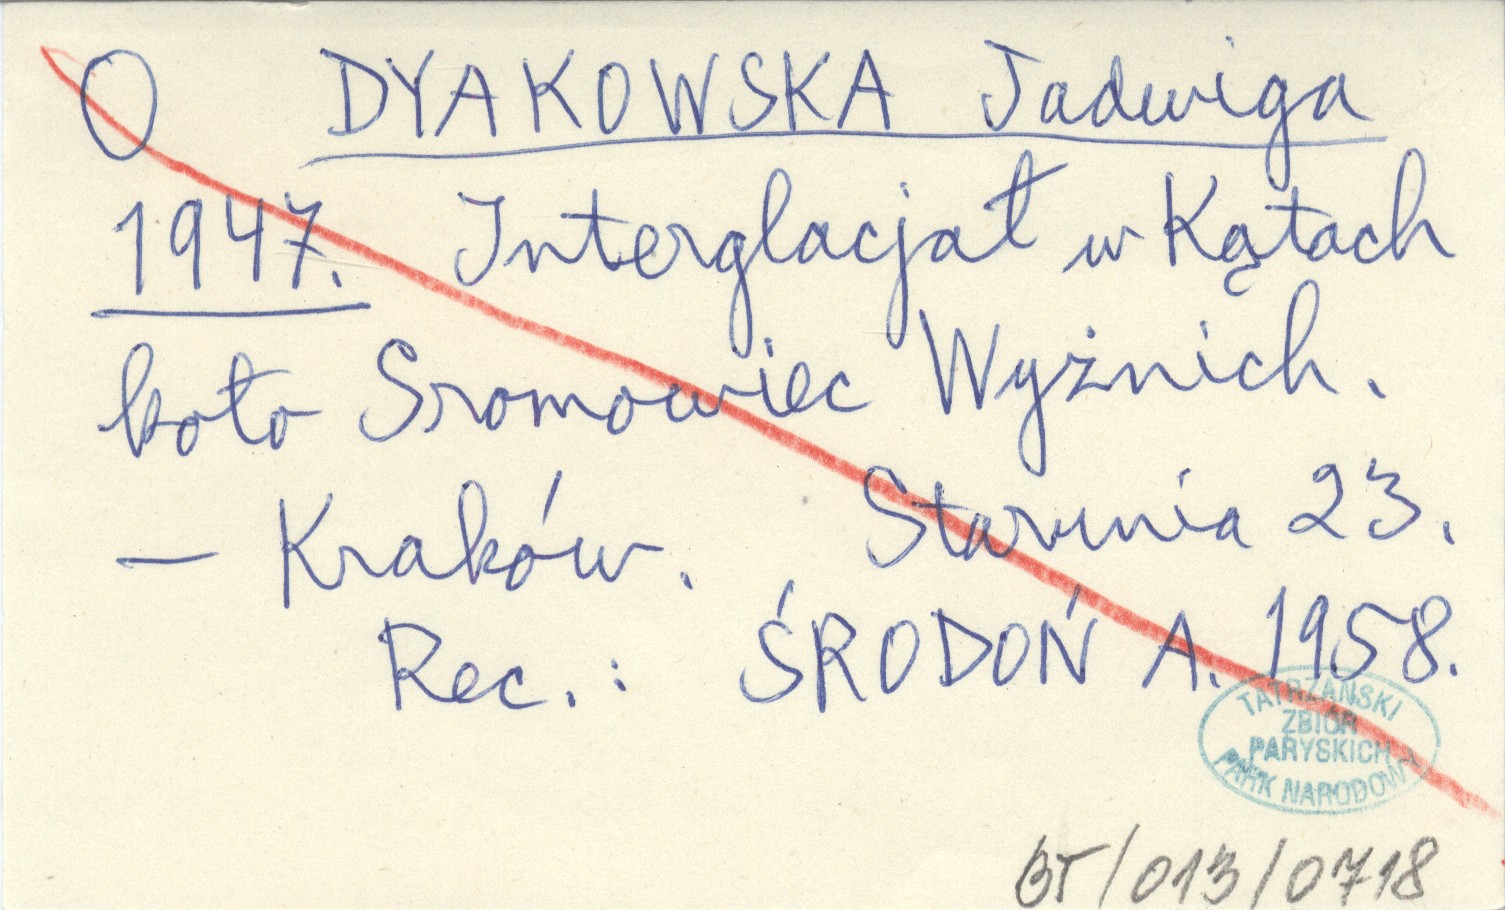 O DYAKOWSKA Jadwiga
1947. Interglacjał w Kątach
koło Sromowiec Wyżnich.
— Kraków. Starunia 23.
Rec.: ŚRODOŃ A. 1958.
TATRZAŃSKI
ZBIÓR
PARYSKICH
PARK NARODOWY
BT/013/0718